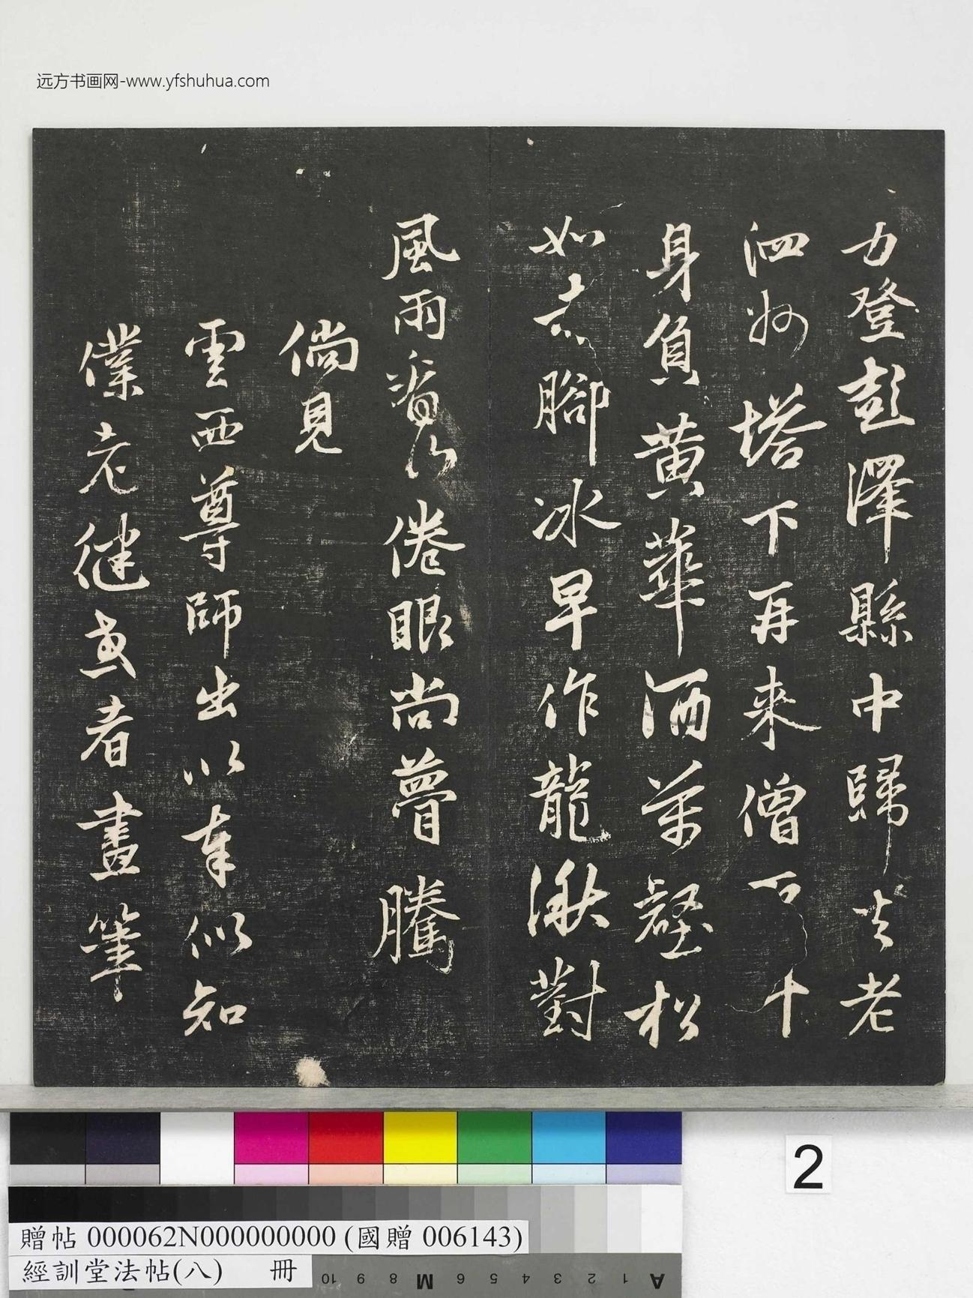 远方书画网-www.yfshuhua.com
力登彭澤縣中歸去老
泗州塔下再來僧百千
身負黄華酒萬壑松
如赤腳冰早作龍湫對
風雨省行倦眼尚瞢騰
倘見
雲西尊師出以奉似知
僕老健或者畫筆
2
贈帖 000062N000000000 (國贈 006143)
經訓堂法帖(八) 冊
10 9 8 M 6 5 4 3 2 1 A